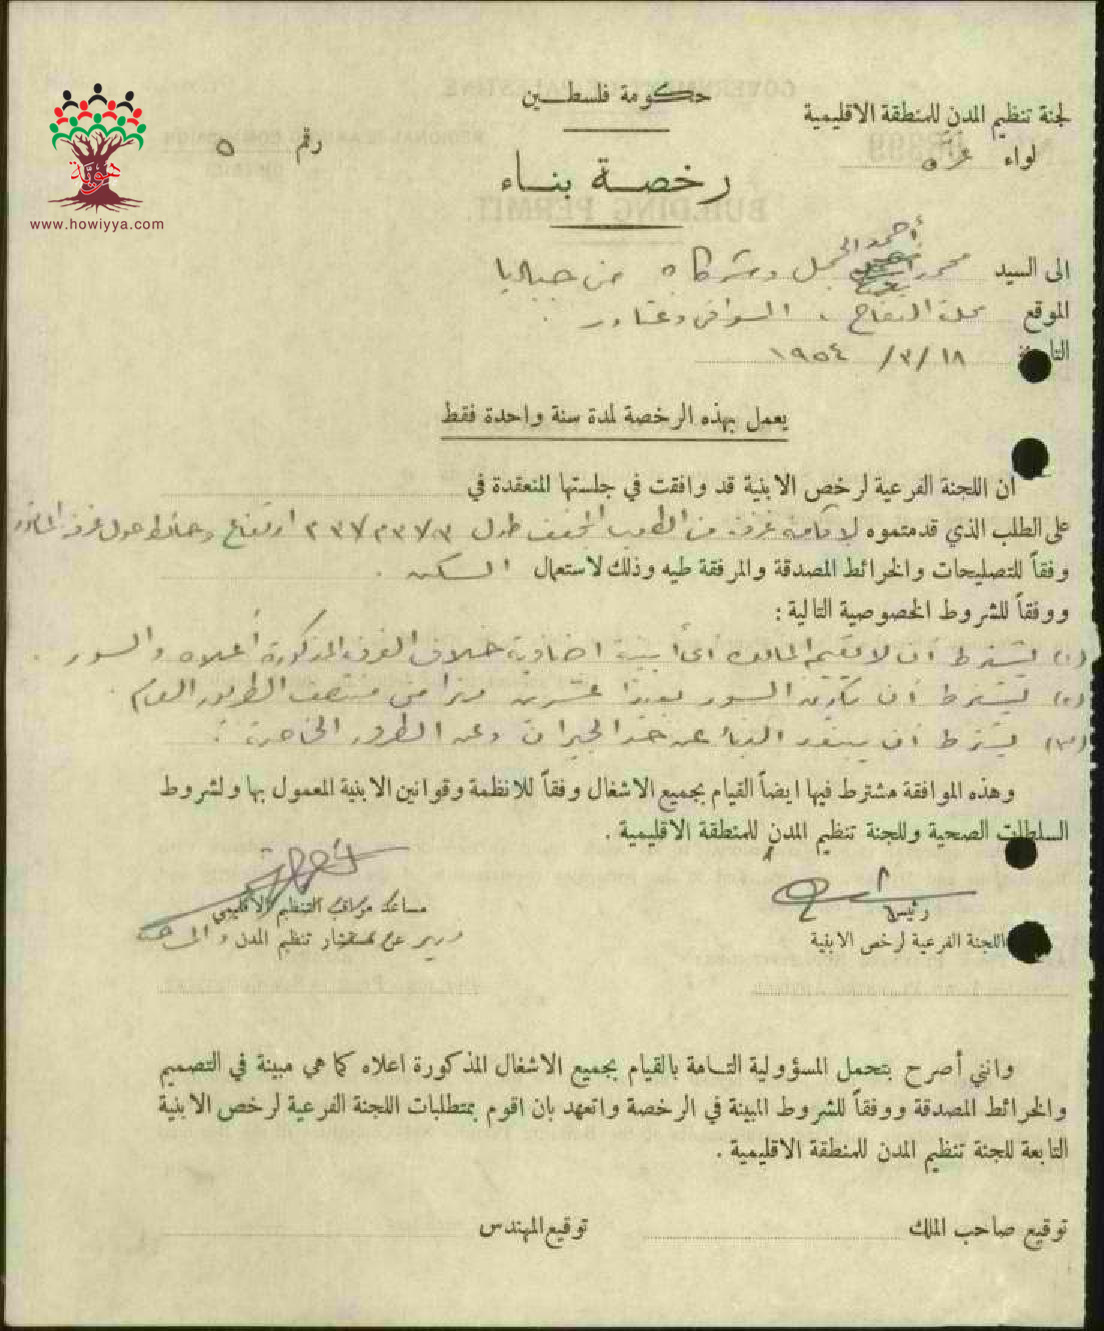 حكومة فلسطين
لجنة تنظيم المدن للمنطقة الاقليمية
لواء غزه
رقم ٥
هوية
www.howiyya.com
رخصة بناء
الى السيد محمد أحمد الجمل وشركاه من جباليا
الموقع محلة التفاح
التاريخ ١٨ /٣/ ١٩٥٤
يعمل بهذه الرخصة لمدة سنة واحدة فقط
ان اللجنة الفرعية لرخص الابنية قد وافقت في جلستها المنعقدة في
على الطلب الذي قدمتموه لاقامة غرفة من الطوب المجفف طول ارتفاع وحائط حول غرفة
وفقاً للتصليحات والخرائط المصدقة والمرفقة طيه وذلك لاستعمال السكن .
ووفقاً للشروط الخصوصية التالية :
(١) يشترط ان لا يقيم المالك أي أبنية اضافية خلاف الغرفة المذكورة أعلاه والسور .
(٢) يشترط أن يكون السور بعيدا عشرين مترا من منتصف الطريق العام .
(٣) يشترط أن يبتعد البناء عن حد الجيران وعن الطرق الخاصة .
وهذه الموافقة مشترط فيها ايضاً القيام بجميع الاشغال وفقاً للانظمة وقوانين الابنية المعمول بها ولشروط
السلطات الصحية وللجنة تنظيم المدن للمنطقة الاقليمية .
رئيس
اللجنة الفرعية لرخص الابنية
مساعد مراقب التنظيم الاقليمي
مدير عن مستشار تنظيم المدن و
وانني أصرح بتحمل المسؤولية التامة بالقيام بجميع الاشغال المذكورة اعلاه كما هي مبينة في التصميم
والخرائط المصدقة ووفقاً للشروط المبينة في الرخصة واتعهد بان اقوم بمتطلبات اللجنة الفرعية لرخص الابنية
التابعة للجنة تنظيم المدن للمنطقة الاقليمية .
توقيع صاحب الملك
توقيع المهندس